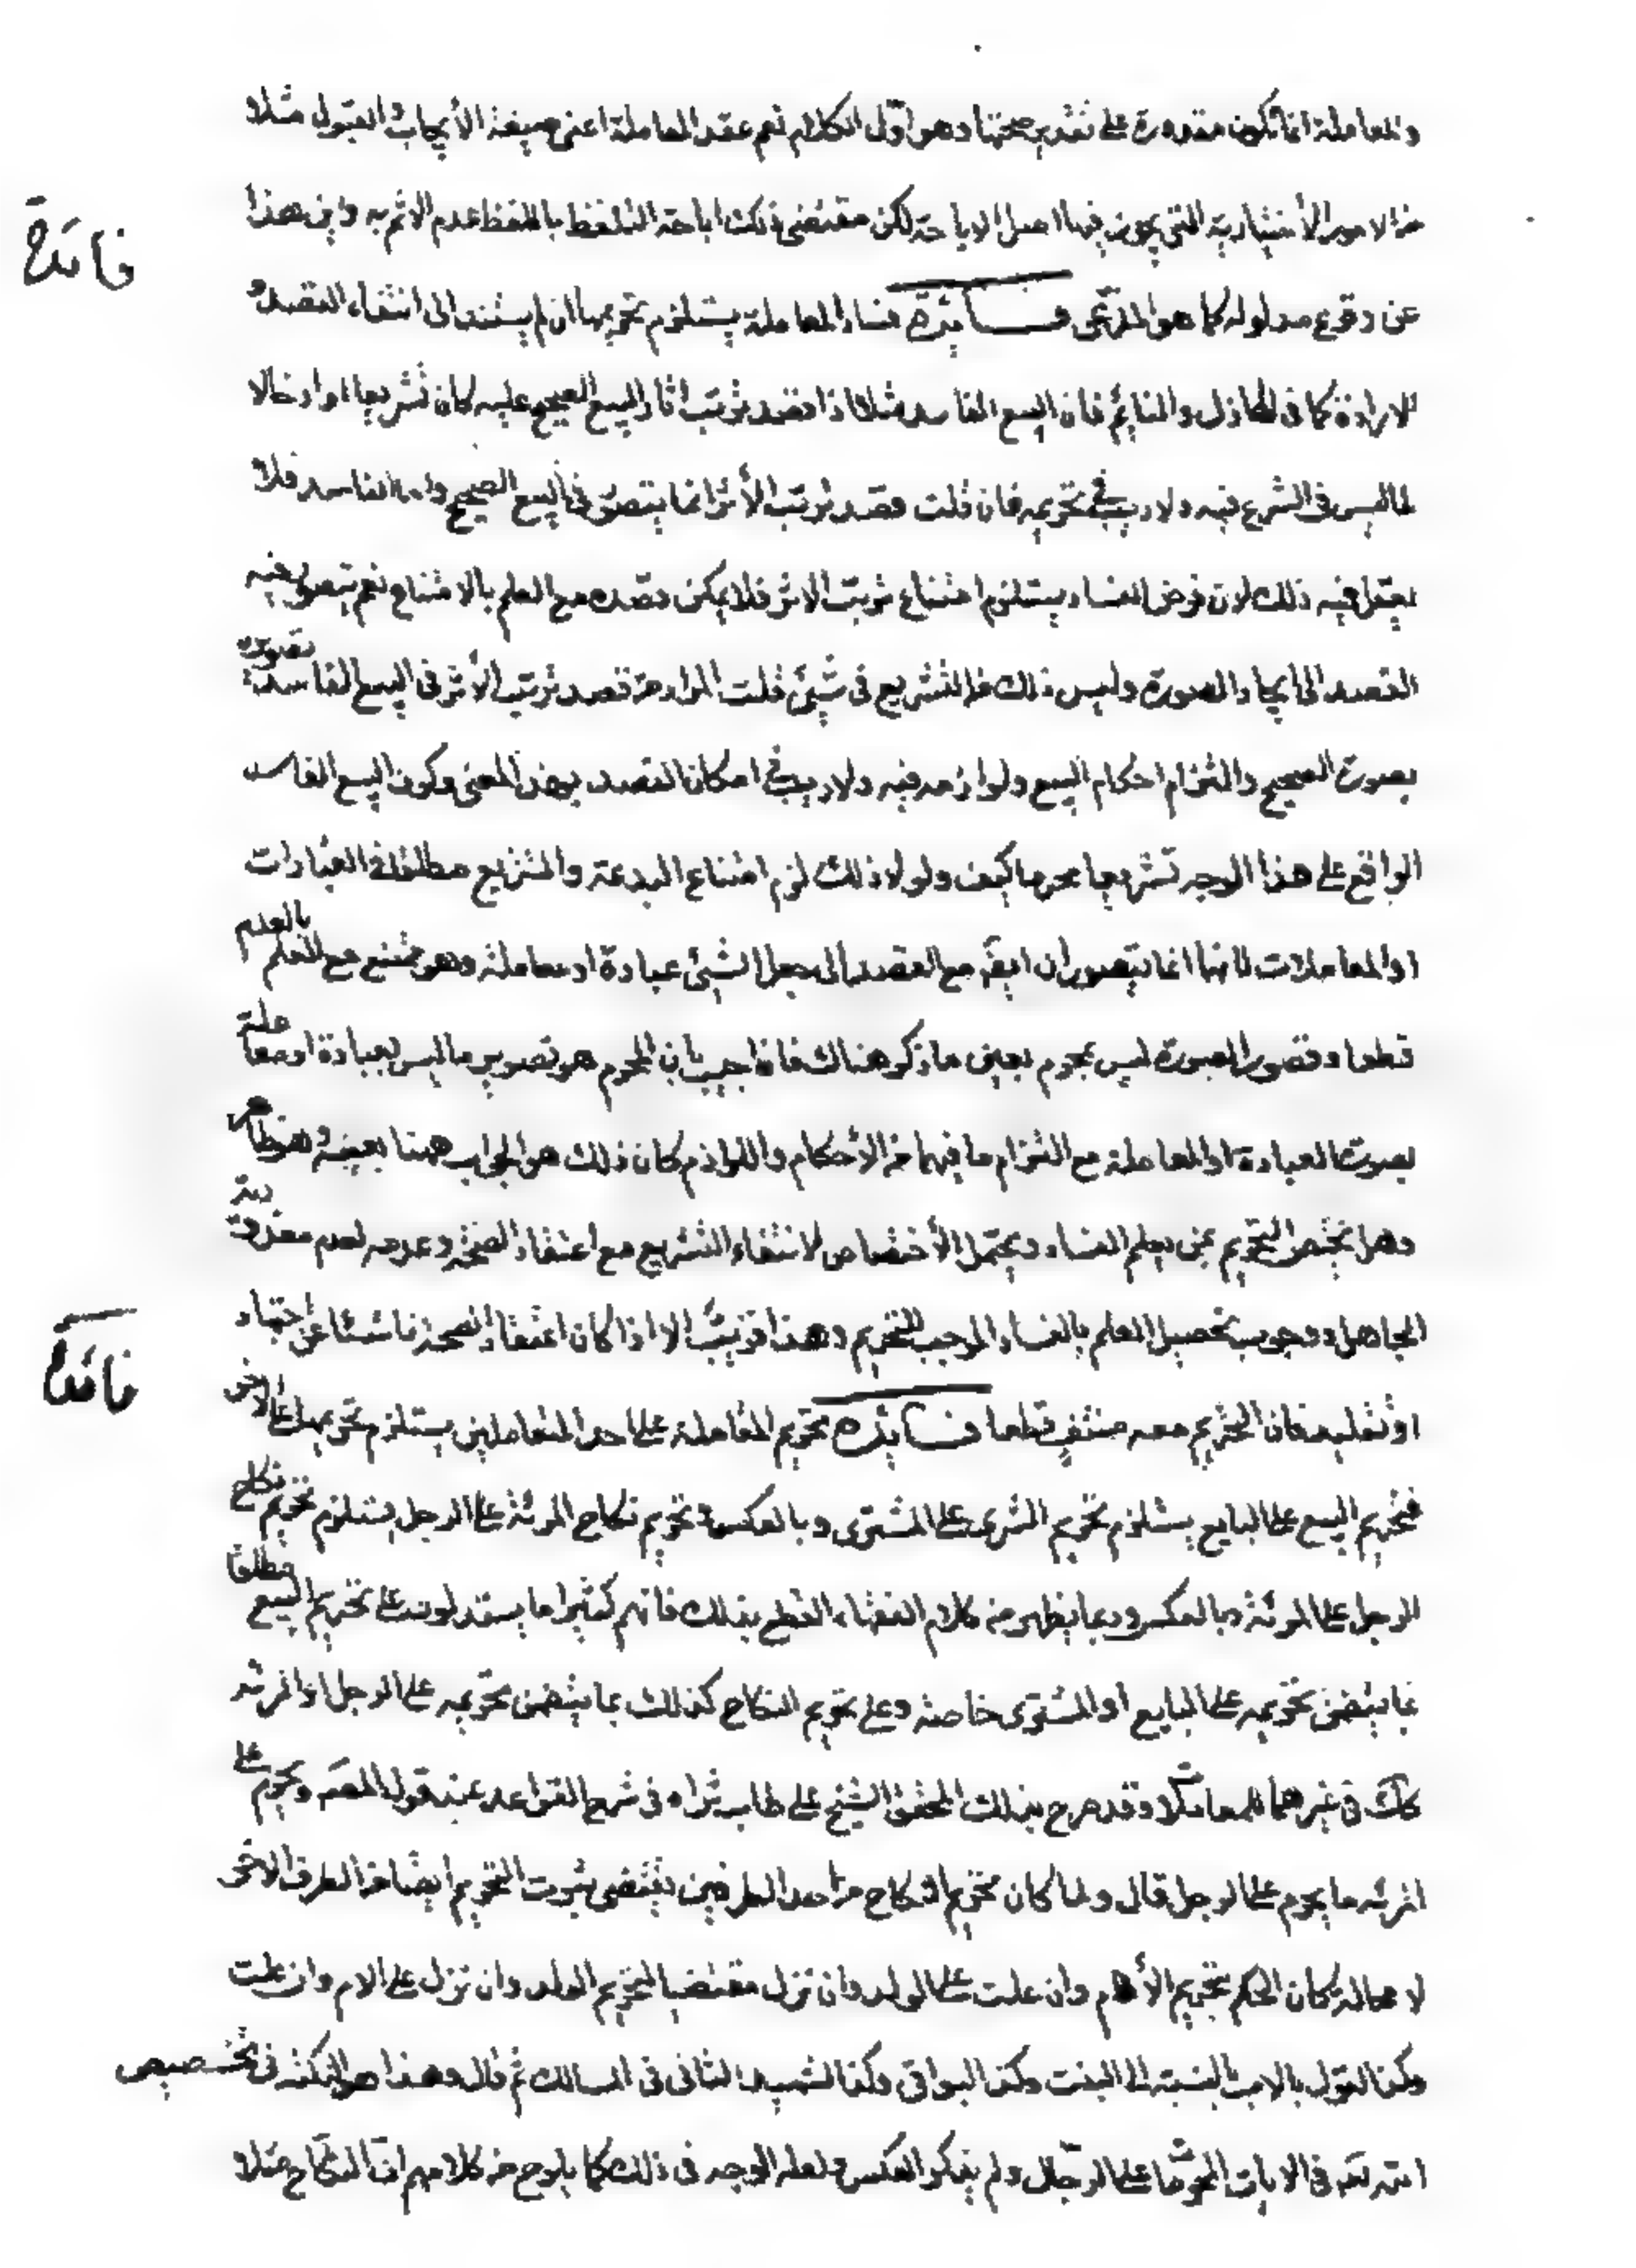 والمعاملة انما تكون مقدورة على تقدير صحتها وهو اول الكلام نعم عقد المعاملة اعنى صيغة الأيجاب والقبول مثلا
من الامور الأختيارية التى يجرى فيها اصل الاباحة لكن مقتضى ذلك اباحة التلفظ باللفظ وعدم الاثم به واين هذا
فائدة
عن وقوع مدلوله كما هو المدعى فائدة فساد المعاملة يستلزم تحريمها ان لم يستند الى انتفاء القصد و
الارادة كما فى الهازل والنايم فان البيع الفاسد مثلا اذا قصد ترتب اثار البيع الصحيح عليه كان تشريعا وادخالا
لما ليس فى الشرع فيه ولا ريب فى تحريمه فان قلت قصد ترتب الأثر انما يتصور فى البيع الصحيح واما الفاسد فلا
يعقل فيه ذلك لان فرض الفساد يستلزم امتناع ترتب الاثر فلا يمكن قصده مع العلم بالامتناع نعم يتصور فيه
القصد الى ايجاد الصورة وليس ذلك من التشريع فى شيئ قلت المراد من قصد ترتب الأثر فى البيع الفاسد تصويره
بصورة الصحيح والتزام احكام البيع ولوازمه فيه ولا ريب فى امكان القصد بهذا المعنى وكون البيع الفاسد
الواقع على هذا الوجه تشريعا محرما كيف ولولا ذلك لزم امتناع البدعة والتشريع مطلقا فى العبادات
او المعاملات لانهما انما يتصوران ايضَ مع القصد الى جعل الشيئ عبادة او معاملة وهو ممتنع مع العلم بالعدم
قطعا وتصور الصورة ليس بمحرم بعين ما ذكر هناك فاذا اجيب بان المحرم هو تصوير ما ليس بعبادة او معاملة
بصورة العبادة او المعاملة مع التزام ما فيهما من الأحكام واللوازم كان ذلك هو الجواب هيهنا بعينه وهو ظاهر
وهل يختص التحريم بمن يعلم الفساد ويحتمل الأختصاص لانتفاء التشريع مع اعتقاد الصحة وعدمه لعدم معذورية
الجاهل ووجوب تحصيل العلم بالفساد الموجب للتحريم وهذا قريب الا اذا كان اعتقاد الصحة ناشئا عن اجتهاد
فائدة
او تقليد فان التحريم معه منتفٍ قطعا فائدة تحريم المعاملة على احد المتعاملين يستلزم تحريمها على الاخر
فتحريم البيع على البايع يستلزم تحريم الشرى على المشترى وبالعكس و تحريم نكاح المرئة على الرجل يستلزم تحريم نكاح
الرجل على المرئة وبالعكس وربما يظهر من كلام الفقهاء القطع بذلك فانهم كثيرا ما يستدلون على تحريم البيع مطلقا
بما يتضمن تحريمه على البايع او المشترى خاصة وعلى تحريم النكاح كذلك بما يتضمن تحريمه على الرجل او المرئة
كك فى غيرهما من المعاملات وقد صرح بذلك المحقق الشيخ على طاب ثراه فى شرح القواعد عند قول المصَ ويحرم على
المرئة ما يحرم على الرجل قال ولما كان تحريم النكاح من احد الطرفين يقتضى ثبوت التحريم ايضا من الطرف الاخر
لا محالة كان الحكم بتحريم الأم وان علت على الولد وان نزل مقتضيا لتحريم الولد وان نزل على الام وان علت
وكذا القول بالاب بالنسبة الى البنت وكذا البواقى وكذا الشهيد الثانى فى المسالك ثم قال وهذا هو النكتة فى تخصيص
الله تعَ فى الايات المحرمات على الرجال ولم يذكر العكس ولعل الوجه فى ذلك كما يلوح من كلامهم ان النكاح مثلا